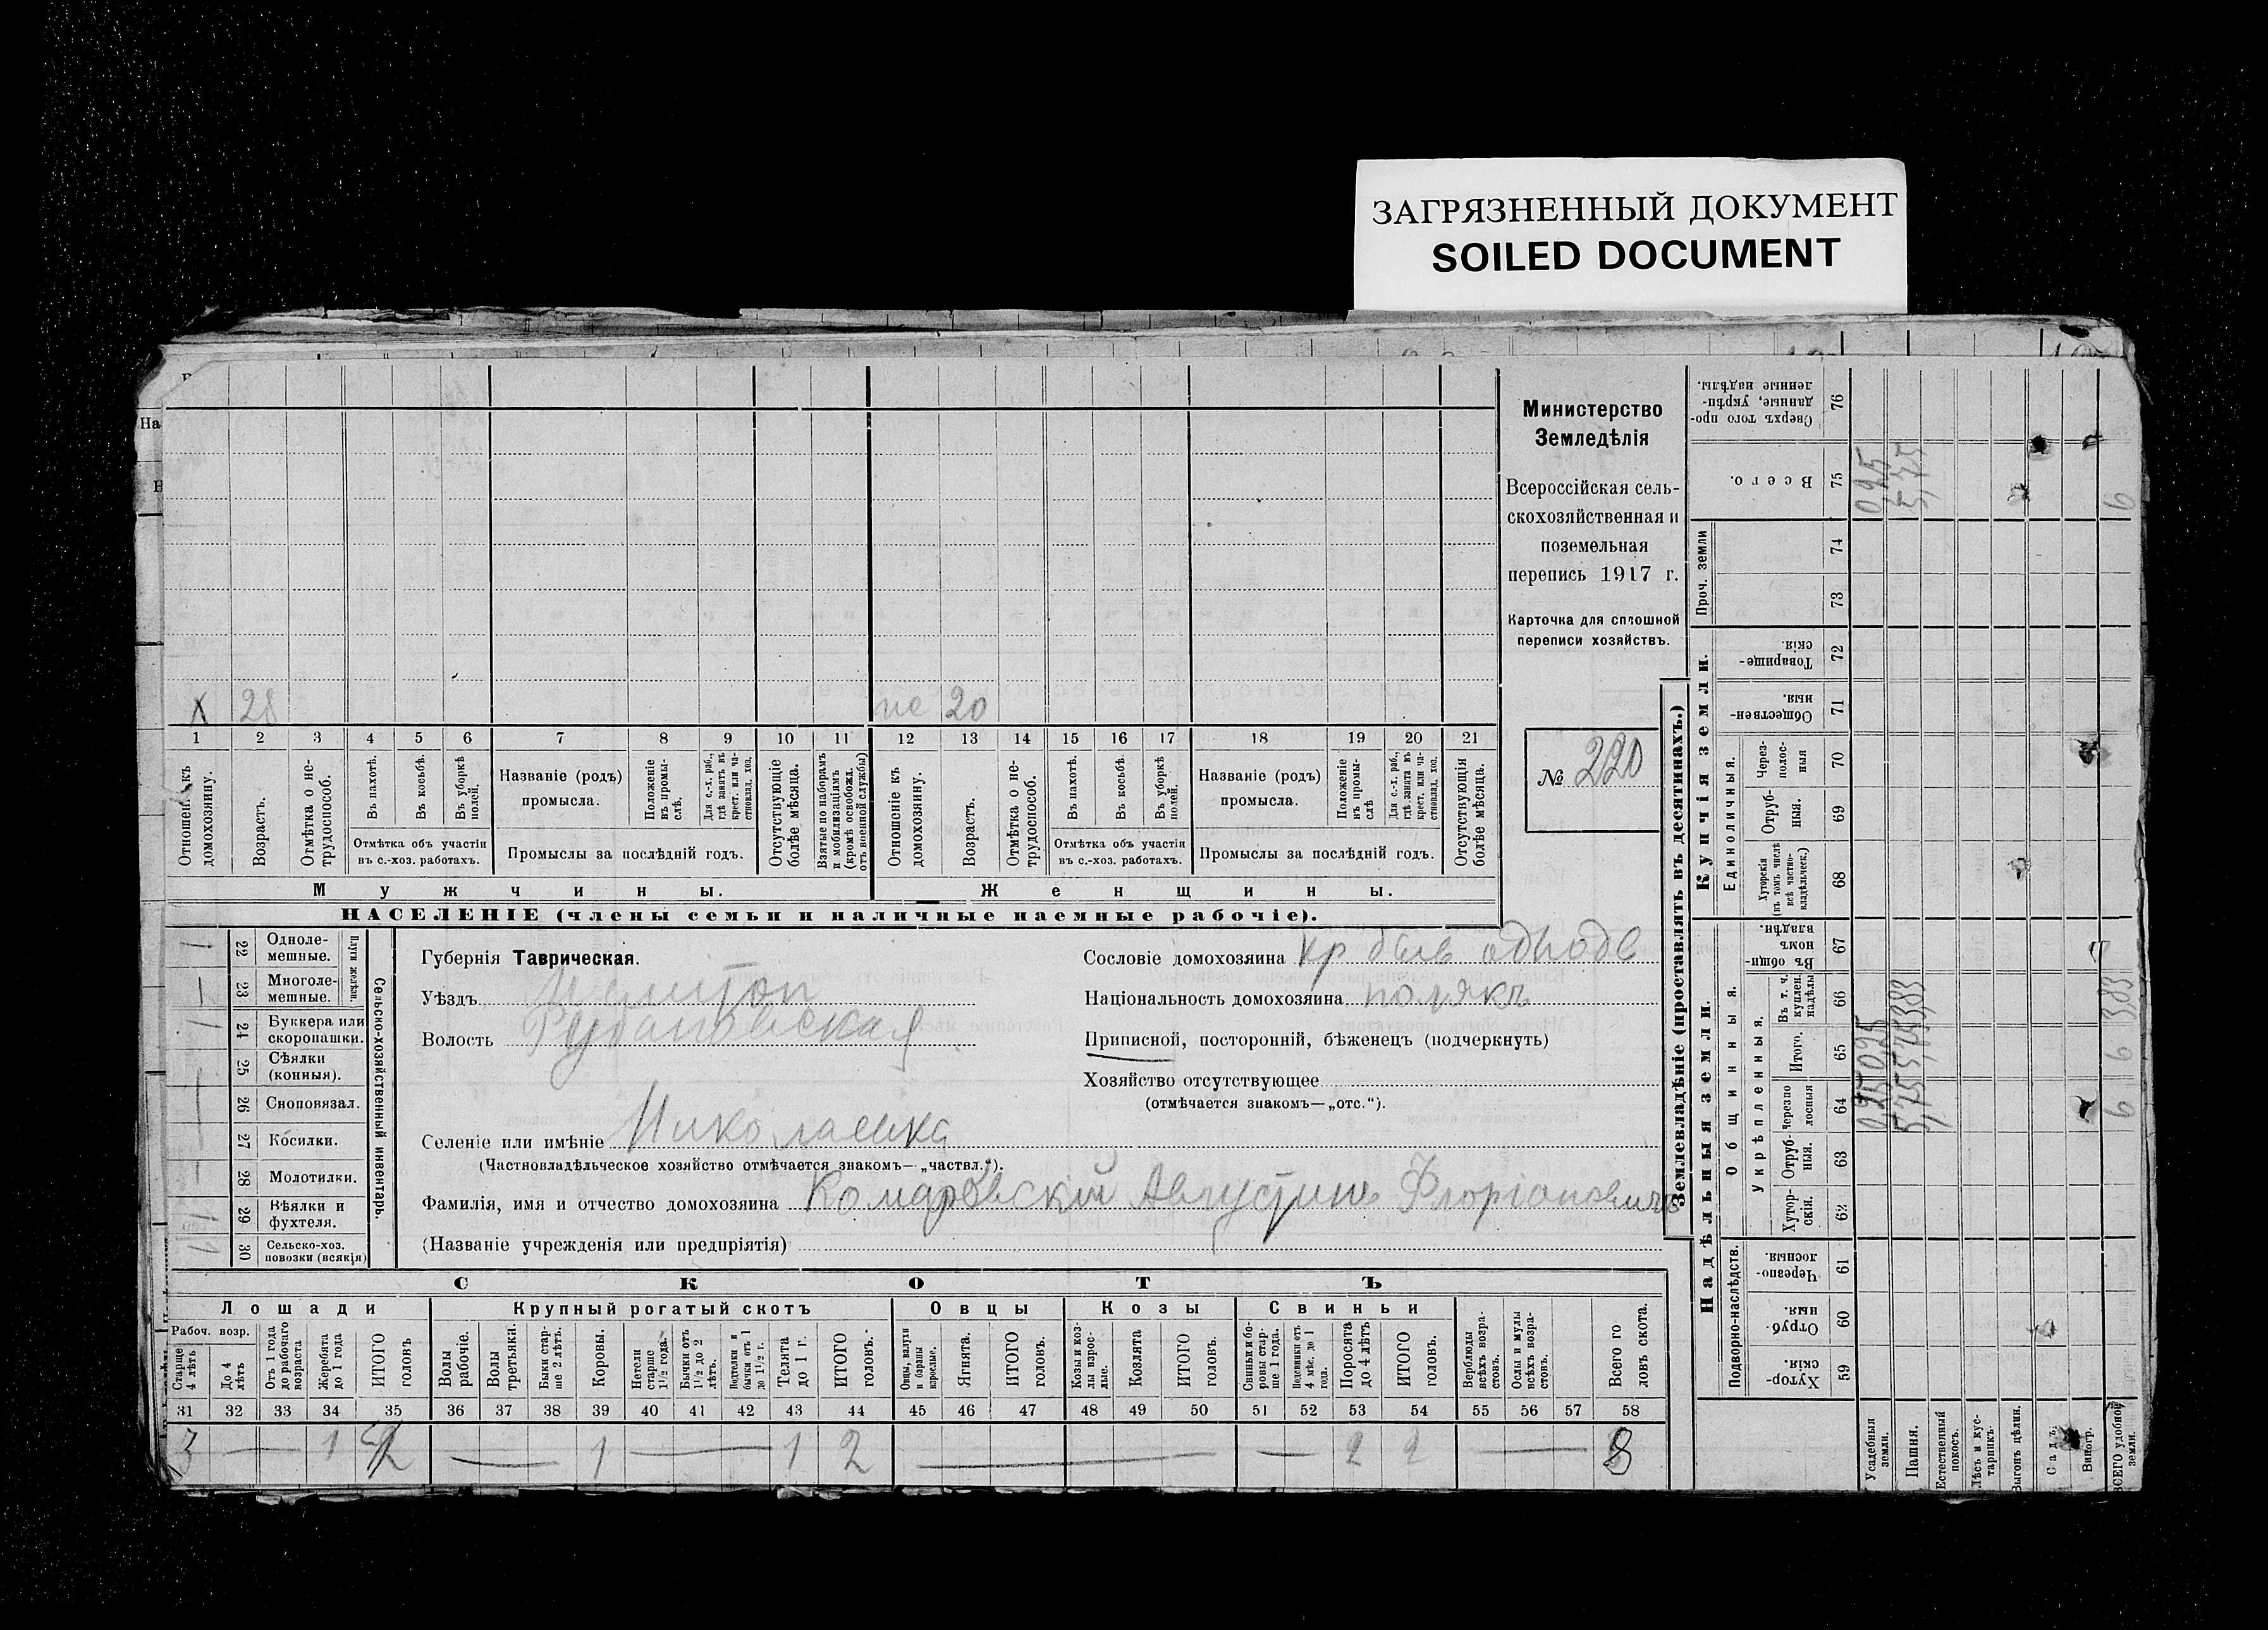 ЗАГРЯЗНЕННЫЙ ДОКУМЕНТ
SOILED DOCUMENT
Министерство
Земледѣлія
Всероссійская сель-
скохозяйственная и
поземельная
перепись 1917 г.
Карточка для сплошной
переписи хозяйствъ.
№ 220
х 28
не 20
1 2 3 4 5 6 7 8 9 10 11 12 13 14 15 16 17 18 19 20 21
Отношен. къ домохозяину.
Возрастъ.
Отмѣтка о не-трудоспособ.
Въ пахотѣ.
Въ косьбѣ.
Въ уборкѣ полей.
Отмѣтка объ участіи
въ с.-хоз. работахъ.
Названіе (родъ)
промысла.
Положеніе въ промы-слѣ.
Для с.-х. раб., гдѣ занятъ въ крест. или ча-стновлад. хоз.
Промыслы за послѣдній годъ.
Отсутствующіе болѣе мѣсяца.
Взятые по наборамъ и мобилизаціямъ (кромѣ освобожд. отъ военной службы)
Отношеніе къ домохозяину.
Возрастъ.
Отмѣтка о не-трудоспособ.
Въ пахотѣ.
Въ косьбѣ.
Въ уборкѣ полей.
Отмѣтка объ участіи
въ с.-хоз. работахъ.
Названіе (родъ)
промысла.
Положеніе въ промы-слѣ
Для с.-х. раб., гдѣ занята въ крест. или ча-стновлад. хоз.
Промыслы за послѣдній годъ.
Отсутствующія болѣе мѣсяца.
Мужчины.
Женщины.
НАСЕЛЕНІЕ (члены семьи и наличные наемные рабочіе).
1 22 Одноле-мешные.
— 23 Многоле-мешные.
Плуги желѣзн.
1 24 Буккера или скоропашки.
— 25 Сѣялки (конныя).
— 26 Сноповязал.
— 27 Косилки.
— 28 Молотилки.
1 29 Вѣялки и фухтеля.
1 30 Сельско-хоз. повозки (всякія)
Сельско-хозяйственный инвентарь.
Губернія Таврическая.
Уѣздъ Мелитоп
Волость Рубановская
Селеніе или имѣніе Николаевка
(Частновладѣльческое хозяйство отмѣчается знакомъ—„частвл.“).
Фамилія, имя и отчество домохозяина Комаровскій Августинъ Флоріановичъ
(Названіе учрежденія или предпріятія)
Сословіе домохозяина кр бывъ одводв
Національность домохозяина полякъ
Приписной, посторонній, бѣженецъ (подчеркнуть)
Хозяйство отсутствующее
(отмѣчается знакомъ—„отс.“).
СКОТЪ
Лошади
Крупный рогатый скотъ
Овцы
Козы
Свиньи
Рабоч. возр.
Старше 4 лѣтъ
До 4 лѣтъ
Отъ 1 года до рабочаго возраста
Жеребята до 1 года
ИТОГО головъ
Волы рабочіе.
Волы третьяки.
Быки стар-ше 2 лѣтъ.
Коровы.
Нетели старше 1½ года.
Бычки отъ 1½ до 2 лѣтъ.
Подтелки и бычки отъ 1 до 1½ г.
Телята до 1 г.
ИТОГО головъ.
Овцы, валухи и бараны взрослые.
Ягнята.
ИТОГО головъ.
Козы и коз-лы взрос-лые.
Козлята
ИТОГО головъ.
Свиньи и бо-ровы стар-ше 1 года.
Подсвинки отъ 4 мѣс. до 1 года.
Поросята до 4 лѣтъ
ИТОГО головъ.
Верблюды всѣхъ возра-стовъ.
Ослы и мулы всѣхъ возра-стовъ.
Всего го ловъ скота.
31 32 33 34 35 36 37 38 39 40 41 42 43 44 45 46 47 48 49 50 51 52 53 54 55 56 57 58
3 — 1 — 1 — 1 2 — — 2 2 — 8
Землевладѣніе (проставлять въ десятинахъ.)
Купчія земли.
Надѣльныя земли.
Сверхъ того про-данные, укрѣп-ленные надѣлы. 76
Всего. 75
Проч. земли 74 73
Товарище-скія. 72
Обществен-ныя. 71
Единоличныя.
Через-полос-ныя 70
Отруб-ныя. 69
Хуторскія (въ томъ числѣ всѣ частно-владѣльческ.) 68
Общинныя.
Въ общин номъ владѣн. 67
Укрѣпленныя.
Въ т. ч. куплен. надѣлы 66
Итого. 65
Черезпо лосныя 64
Отруб-ныя. 63
Хутор-скія. 62
Подворно-наслѣдств.
Черезпо-лосныя. 61
Отруб-ныя. 60
Хутор-скія. 59
Усадебныя земли. 0,25 0,25 0,25
Пашня. 5,75 5,75 3,83 5,75
Естественный покосъ.
Лѣсъ и кус-тарникъ.
Выгонъ цѣлин.
Садъ.
Виногр.
ВСЕГО удобной земли. 6 6 3,83 6